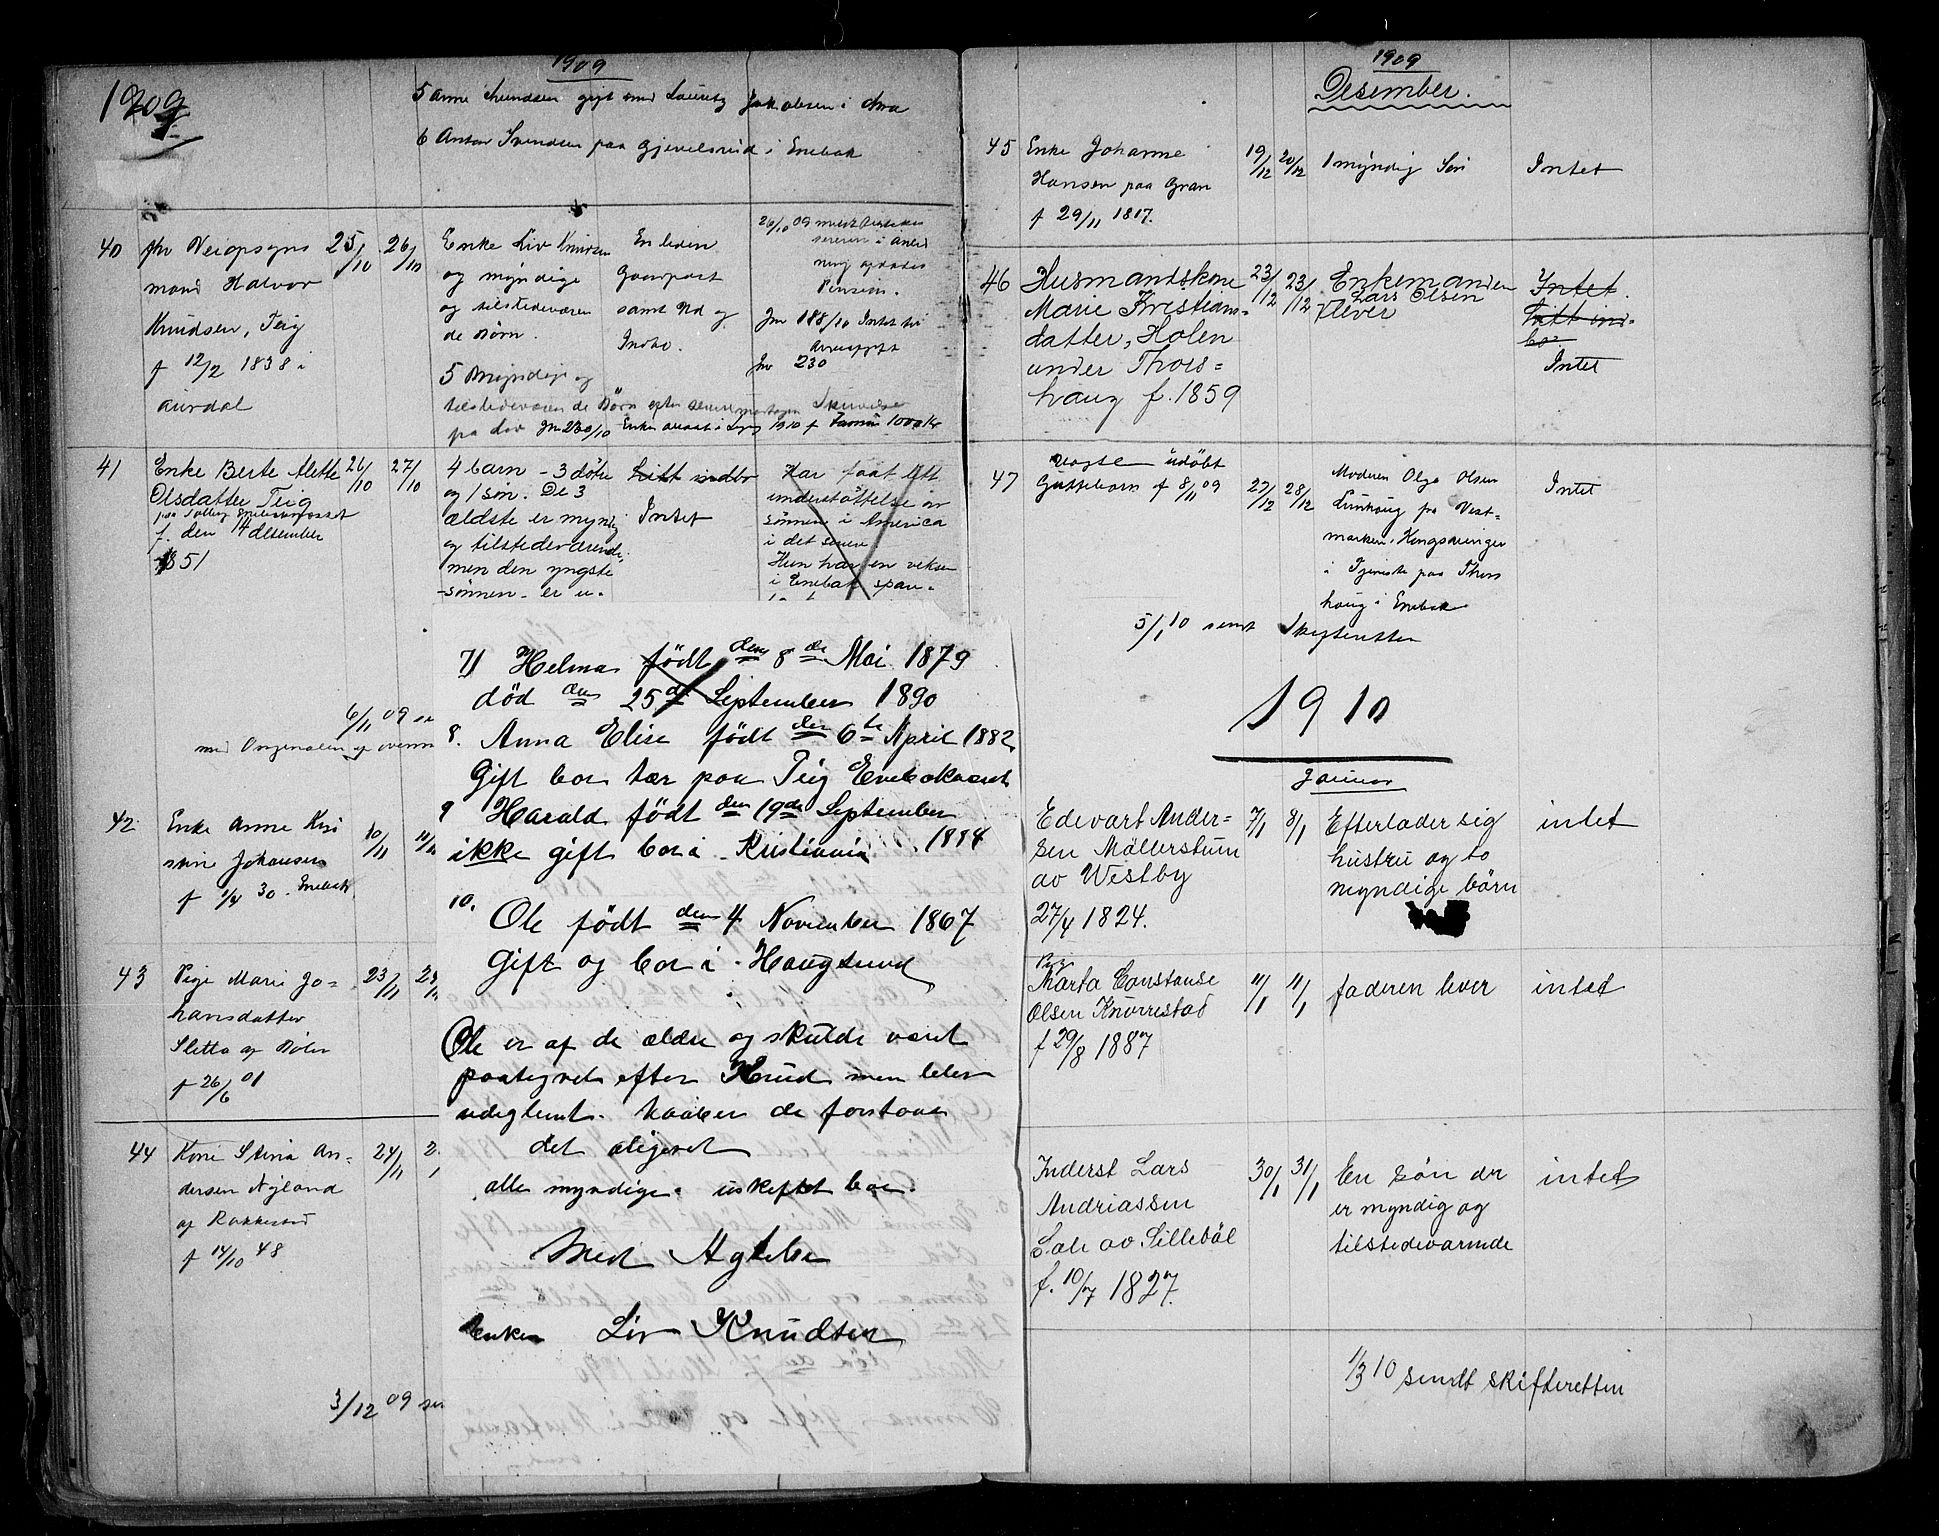 1909
1909
5 Anne Svendsen gift med Lauritz Jakobsen i Moa
6 Anton Svendsen paa Gjevelsrud i Enebak
40
fhv Veiopsyns
mand Halvor
Knudsen, Teig
f 12/2 1838 i
Aurdal
25/10
26/10
Enke Liv Knudsen
og myndige
og tilstedeværen
de Børn.
5 Myndige og
tilstedeværende Børn efter
En liden
Gaardpart
samt Ind og
Indbo.
26/10 09
Pension.
Jm 188/10 Intet til
Jm 230
41
Enke Berte Alette
Olsdatter Teig
f. den 14 desember
1851
26/10
27/10
4 barn - 3 døtre
og 1 søn. De 3
ældste er myndig
og tilstedeværende
men den yngste
sønnen - er u-
Litt indbo
Intet
Har faat litt
understøttelse av
sønnen i America
i det senere
Hun har en veksel
i Enebak spare-
6/11 09
med Originalen og
42
Enke Anne Kri
stine Johansen
f 1/4 30. Enebak
10/11
11/11
43
Pige Marie Jo-
hansdatter
Sletta af Bøler
f 26/6 01
23/11
44
Kone Stina An-
dersen Nyland
af Rakkestad
f 14/10 48
24/11
3/12 09
7) Helma født den 8de Mai 1879
død den 25de September 1890
8. Anna Elise født den 6te April 1882
Gift bor her paa Teig Enebakvæst
9 Harald født den 19de September
ikke gift bor i Kristiania 1884
10.
Ole født den 4 November 1867
Gift og bor i Hougsund
Ole er af de ældre og skulde vært
paategnet efter Knud men blev
udeglemt. haaber de forstaar
det aligevel
alle myndige. uskiftet boe.
Med Agtelse
Enken Liv Knudsen
1909
Desember.
45
Enke Johanne
Hansen paa Gran
f 29/11 1817.
19/12
20/12
1 myndig Søn
Intet
46
Husmandskone
Marie Kristians-
datter, Holen
under Thors-
haug f. 1859
23/12
23/12
Enkemanden
Lars Olsen
lever
Intet
Litt ind-
bo
Intet
47
uægte udøbt
Guttebarn f 8/11 09
27/12
28/12
Moderen Olga Olsen
Lunhaug fra Vest-
marken, Kongsvinger
i Tjeneste paa Thors
haug i Enebak
Intet
5/1 10 sendt Skifteretten
1910
Januar
Edevart Ander-
sen Møllerstum
av Westby
27/4 1824.
7/1
8/1
Efterlader sig
hustru og to
myndige børn
intet
Pige
Marta Constanse
Olsen Knurrestad
f 29/8 1887
11/1
11/1
faderen lever
intet
Inderst Lars
Andriassen
Dale av Sillebøl
f. 10/7 1827.
30/1
31/1
En søn der
er myndig og
tilstedevarende
intet
1/3 10 sendt skifteretten